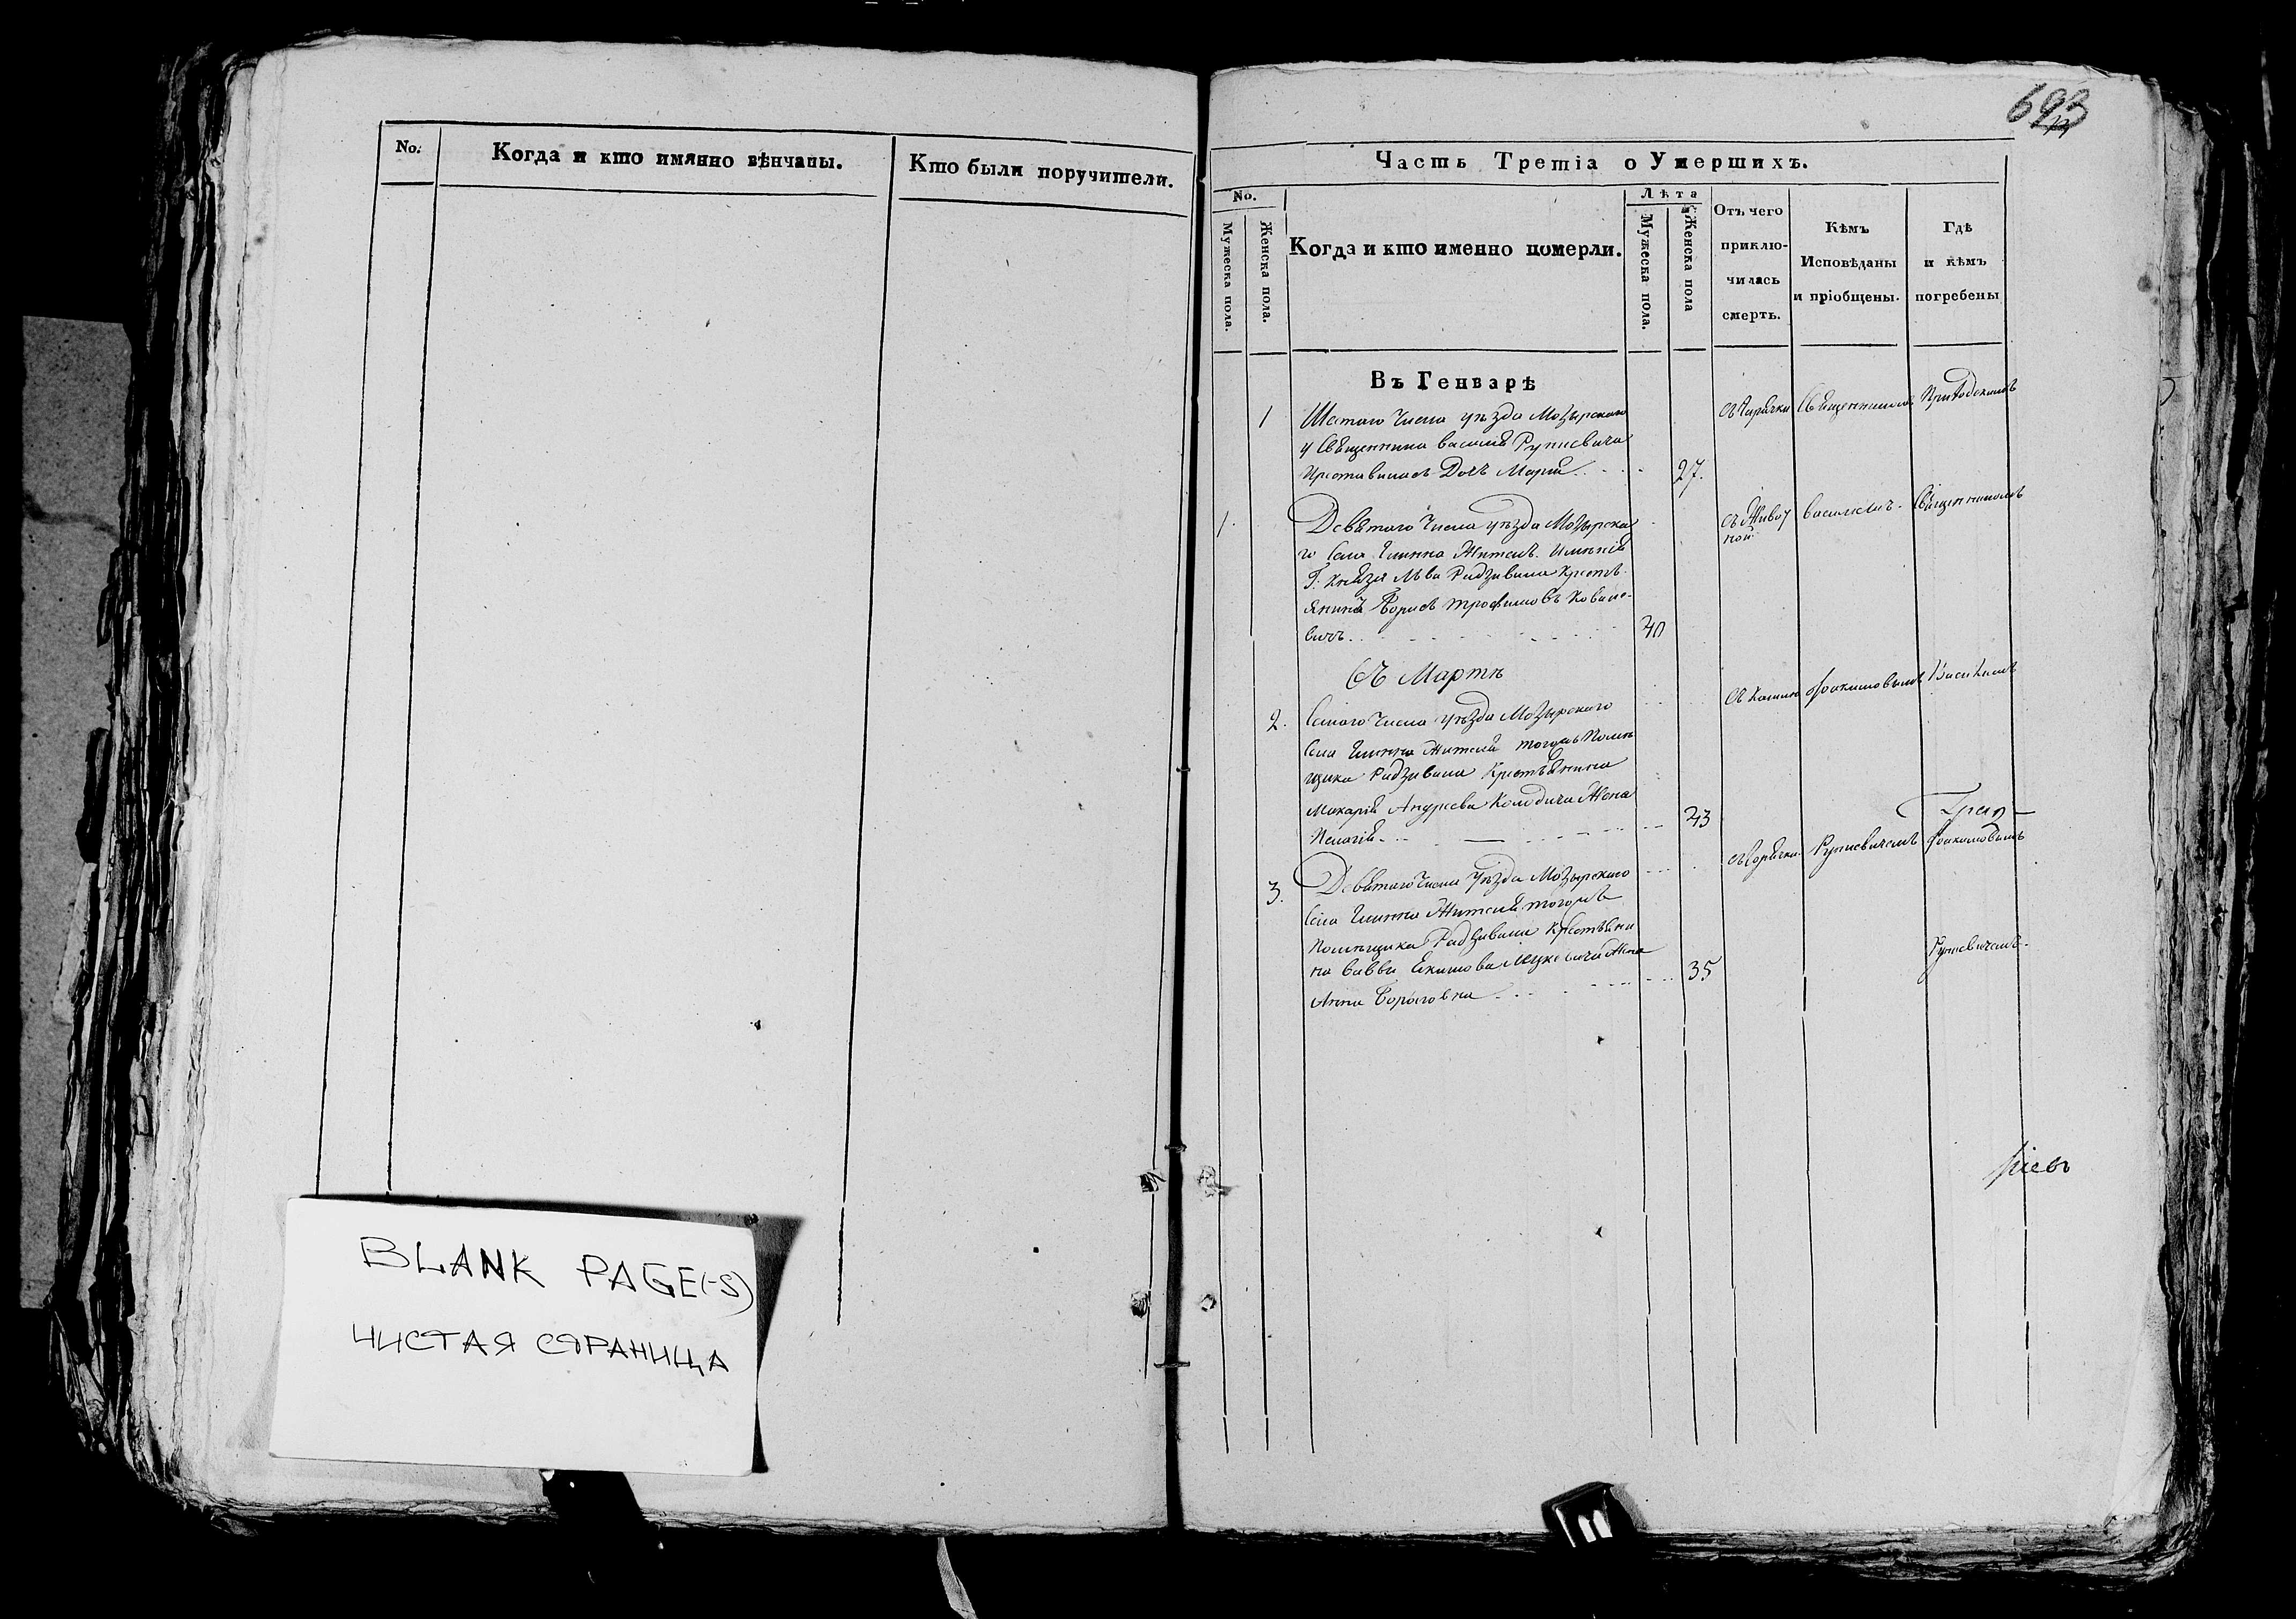 No.
Когда и кто имянно вѣнчаны.
Кто были поручители.
BLANK PAGE(-S)
ЧИСТАЯ СТРАНИЦА
693
Часть Третіа о Умершихъ.
No.
Мужеска пола.
Женска пола.
Когда и кто именно померли.
Лѣта
Мужеска пола.
Женска пола
Отъ чего
приклю-
чилась
смерть.
Кѣмъ
Исповѣданы
и пріобщены.
Гдѣ
и кѣмъ
погребены
Въ Генварѣ
1 Шестаго Числа уѣзда Мозырскаго
у Священника василія Рункевича
Преставилась Дочь Марія 27.
съ Горячки Священникомъ Приходскимъ
1. Девятаго Числа уѣзда Мозырска
го Села Глинна Житель Имѣнія
Г. Князя Льва Радзивила Кресть
янинъ Борисъ трофимовъ
вичъ 40
василіемъ Священникомъ
Съ Мартѣ
2. Семаго Числа уѣзда Мозырскаго
Села Глинна Жителя тогожъ Помѣ
щика Радзивила Крестьянина
Макарія Андреева Колодича Жена
Пелагія 43
Василіемъ
3. Девятаго Числа Уѣзда Мозырскаго
Села Глинна Жителя тогожъ
Помѣщика Радзивила Крестьяни
на Саввы Екимова Жена
Анна 35
съ Горячки Рункевичемъ
Рункевичемъ